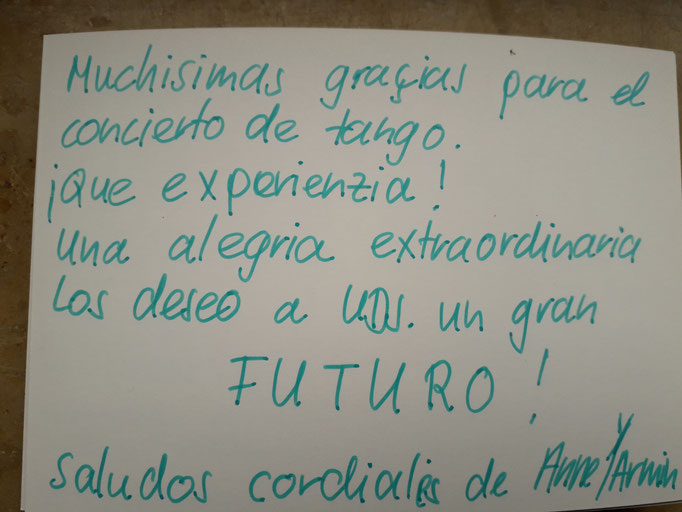 Muchisimas graçias para el
concierto de tango.
¡Que experienzia!
una alegria extraordinaria
Los deseo a UDS. un gran
FUTURO!
Saludos cordiales de Anne y Armin